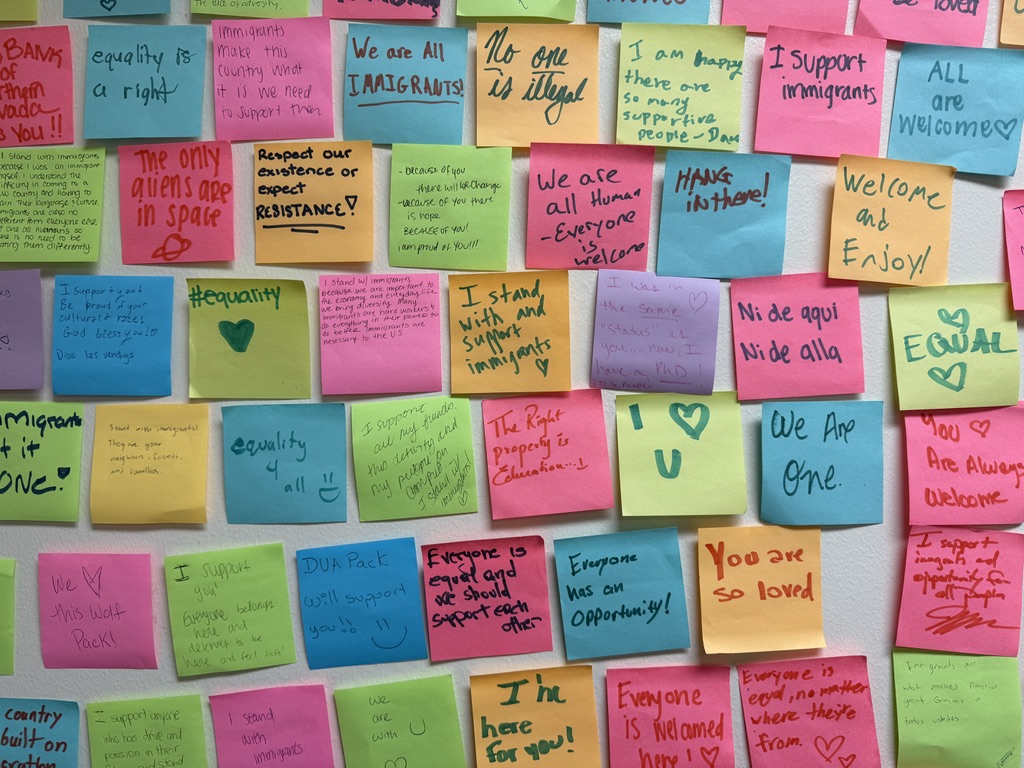 The rule of adversity.
be loved
BANK
OF
US YOU !!
equality is
a right
Immigrants
make this
country what
it is we need
to support them
We are All
IMMIGRANTS!
No one
is illegal
I am happy
there are
so many
supportive
people - Dan
I Support
immigrants
ALL
are
Welcome♡
I Stand with Immigrants
because I was an immigrant
myself I understand the
difficulty in coming to a
The only
aliens are
in space
Respect our
existence or
expect
RESISTANCE!
- because of you
there will be Change
- because of you there
is hope
BECAUSE OF YOU!
I am proud OF YOU!!!
We are
all Human
- Everyone
is
welcome
HANG
in there!
Welcome
and
Enjoy!
I support you!
Be proud of your
culture & race!
God bless you!
Dios les vendiga
#equality
I Stand w/ immigrants
because we are important to
the economy and everyday life
we bring diversity. Many
immigrants are hard workers &
do everything in their power to
do better. Immigrants are
necessary to the U.S.
I stand
with and
support
immigrants
♡
I was in
the same
"status" as
you... now, I
have a PhD!
Ni de aqui
Ni de alla
EQUAL
immigrants
get it
DONE!
Stand with immigrants!
They are your
neighbors, friends,
and families.
equality
4
all
I support
all my friends,
I stand w/
immigrants!
The Right
property is
Education...!
I ♡
U
We Are
One.
You ♡
Are Always
Welcome
We ♡
This Wolf
Pack!
I support
you!
Everyone belongs
here and
deserves to be
here and feel safe
DUA Pack
will support
you!!
Everyone is
equal and
we should
support each
other
Everyone
has an
Opportunity!
You are
so loved
I support
immigrants and
opportunity for
all people
country
built on
I support anyone
who has drive and
passion in their
I stand
with
immigrants
we
are
with U
I'm
here
for you!
Everyone
is welcomed
here! ♡
Everyone is
equal, no matter
where they're
from. ♡
Immigrants are
what makes America
great Gracias a
todos ustedes.